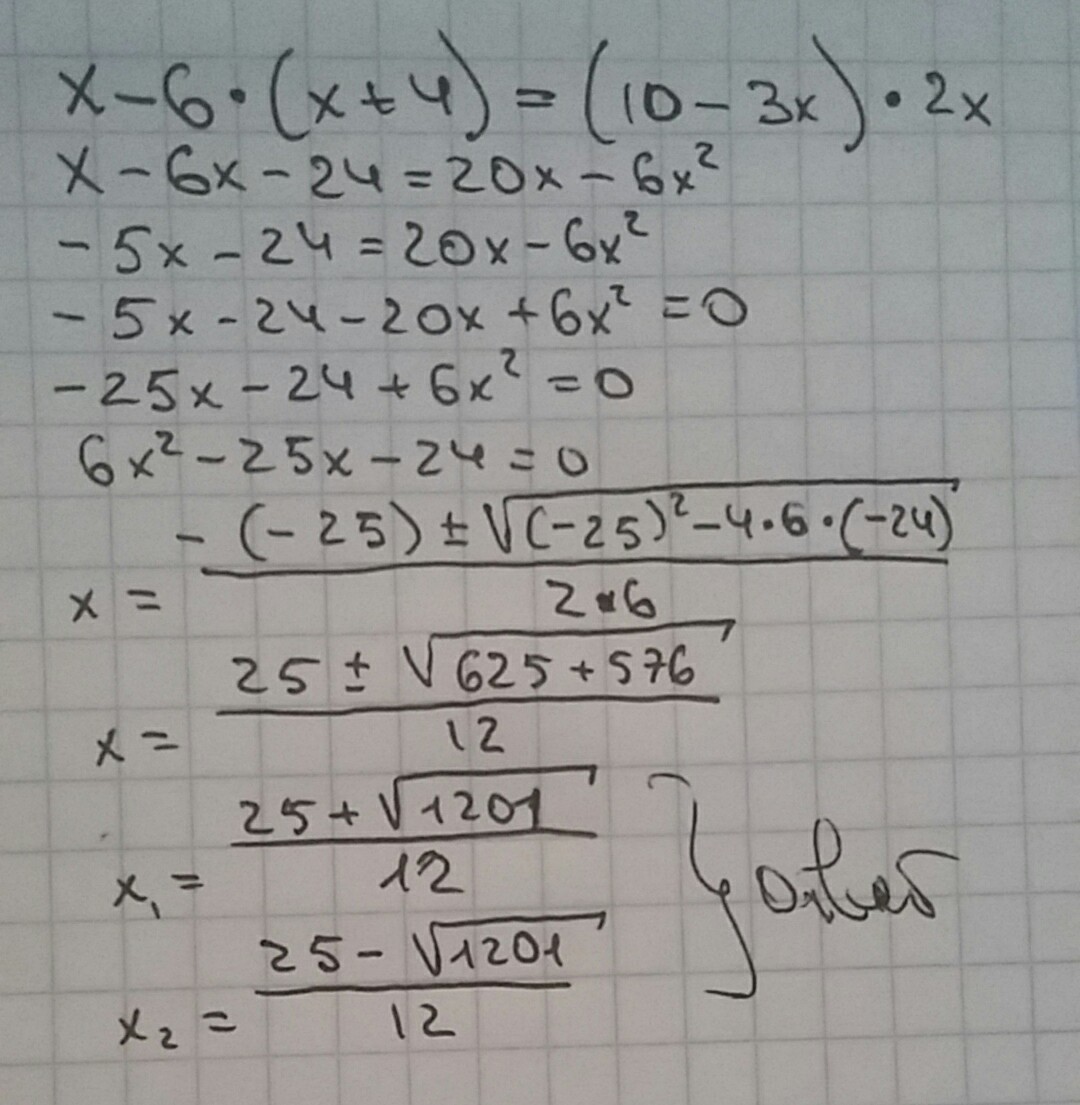 x-6·(x+4)=(10-3x)·2x
x-6x-24=20x-6x²
-5x-24=20x-6x²
-5x-24-20x+6x²=0
-25x-24+6x²=0
6x²-25x-24=0
x = (-(-25)±√((-25)²-4·6·(-24)))/(2·6)
x = (25±√(625+576))/12
x₁ = (25+√1201)/12
x₂ = (25-√1201)/12
} ответ